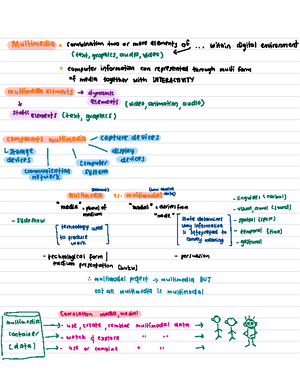 Multimedia = combination two or more elements of ... within digital environment
(text, graphics, audio, video)
= computer information can represented through multi form
of media together with INTERACTIVITY
multimedia elements → dynamic
elements (video, animation, audio)
static
elements (text, graphics)
components multimedia → capture devices
storage
devices
display
devices
communication
network
computer
system
multimedia vs. multimodal
"media" - plural of
medium
"modal" - derives from
"mode"
- linguistic
- visual, aural (sound)
- spatial (space)
- temporal (time)
- gestural
- slideshow
[technology used
to produce
work]
[state determines
way information
is interpreted to
convey meaning]
- technological form /
medium presentation
- persuasion
∴ multimodal project → multimedia BUT
not all multimedia is multimodal
media, modal
multimedia
container
(data)
- use, create, combine multimodal data
- watch & explore " "
- use or combine " "